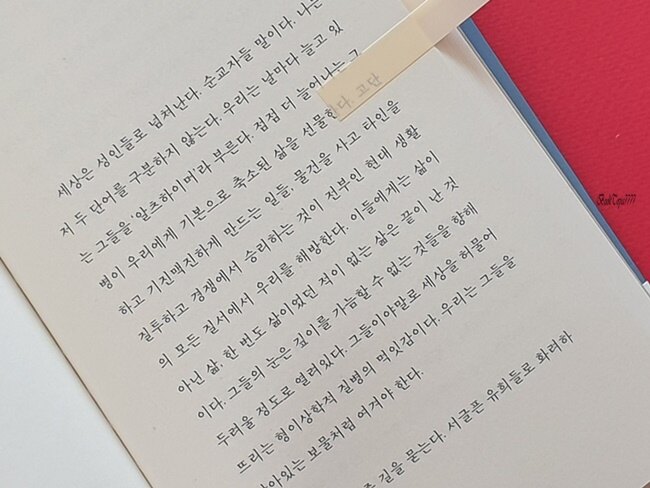 세상은 성인들로 넘쳐난다. 순교자들 말이다. 나는
저 두 단어를 구분하지 않는다. 우리는 날마다 늘고 있
는 그들을 '알츠하이머'라 부른다. 점점 더 늘어나는 그
병이 우리에게 기본으로 축소된 삶을 선물한다. 고단
하고 기진맥진하게 만드는 일들, 물건을 사고 타인을
질투하고 경쟁에서 승리하는 것이 전부인 현대 생활
의 모든 질서에서 우리를 해방한다. 이들에게는 삶이
아닌 삶, 한 번도 삶이었던 적이 없는 삶은 끝이 난 것
이다. 그들의 눈은 깊이를 가늠할 수 없는 것들을 향해
두려울 정도로 열려있다. 그들이야말로 세상을 허물어
뜨리는 형이상학적 질병의 먹잇감이다. 우리는 그들을
보물처럼 여겨야 한다.
길을 묻는다. 서글픈 유희들로 화려하